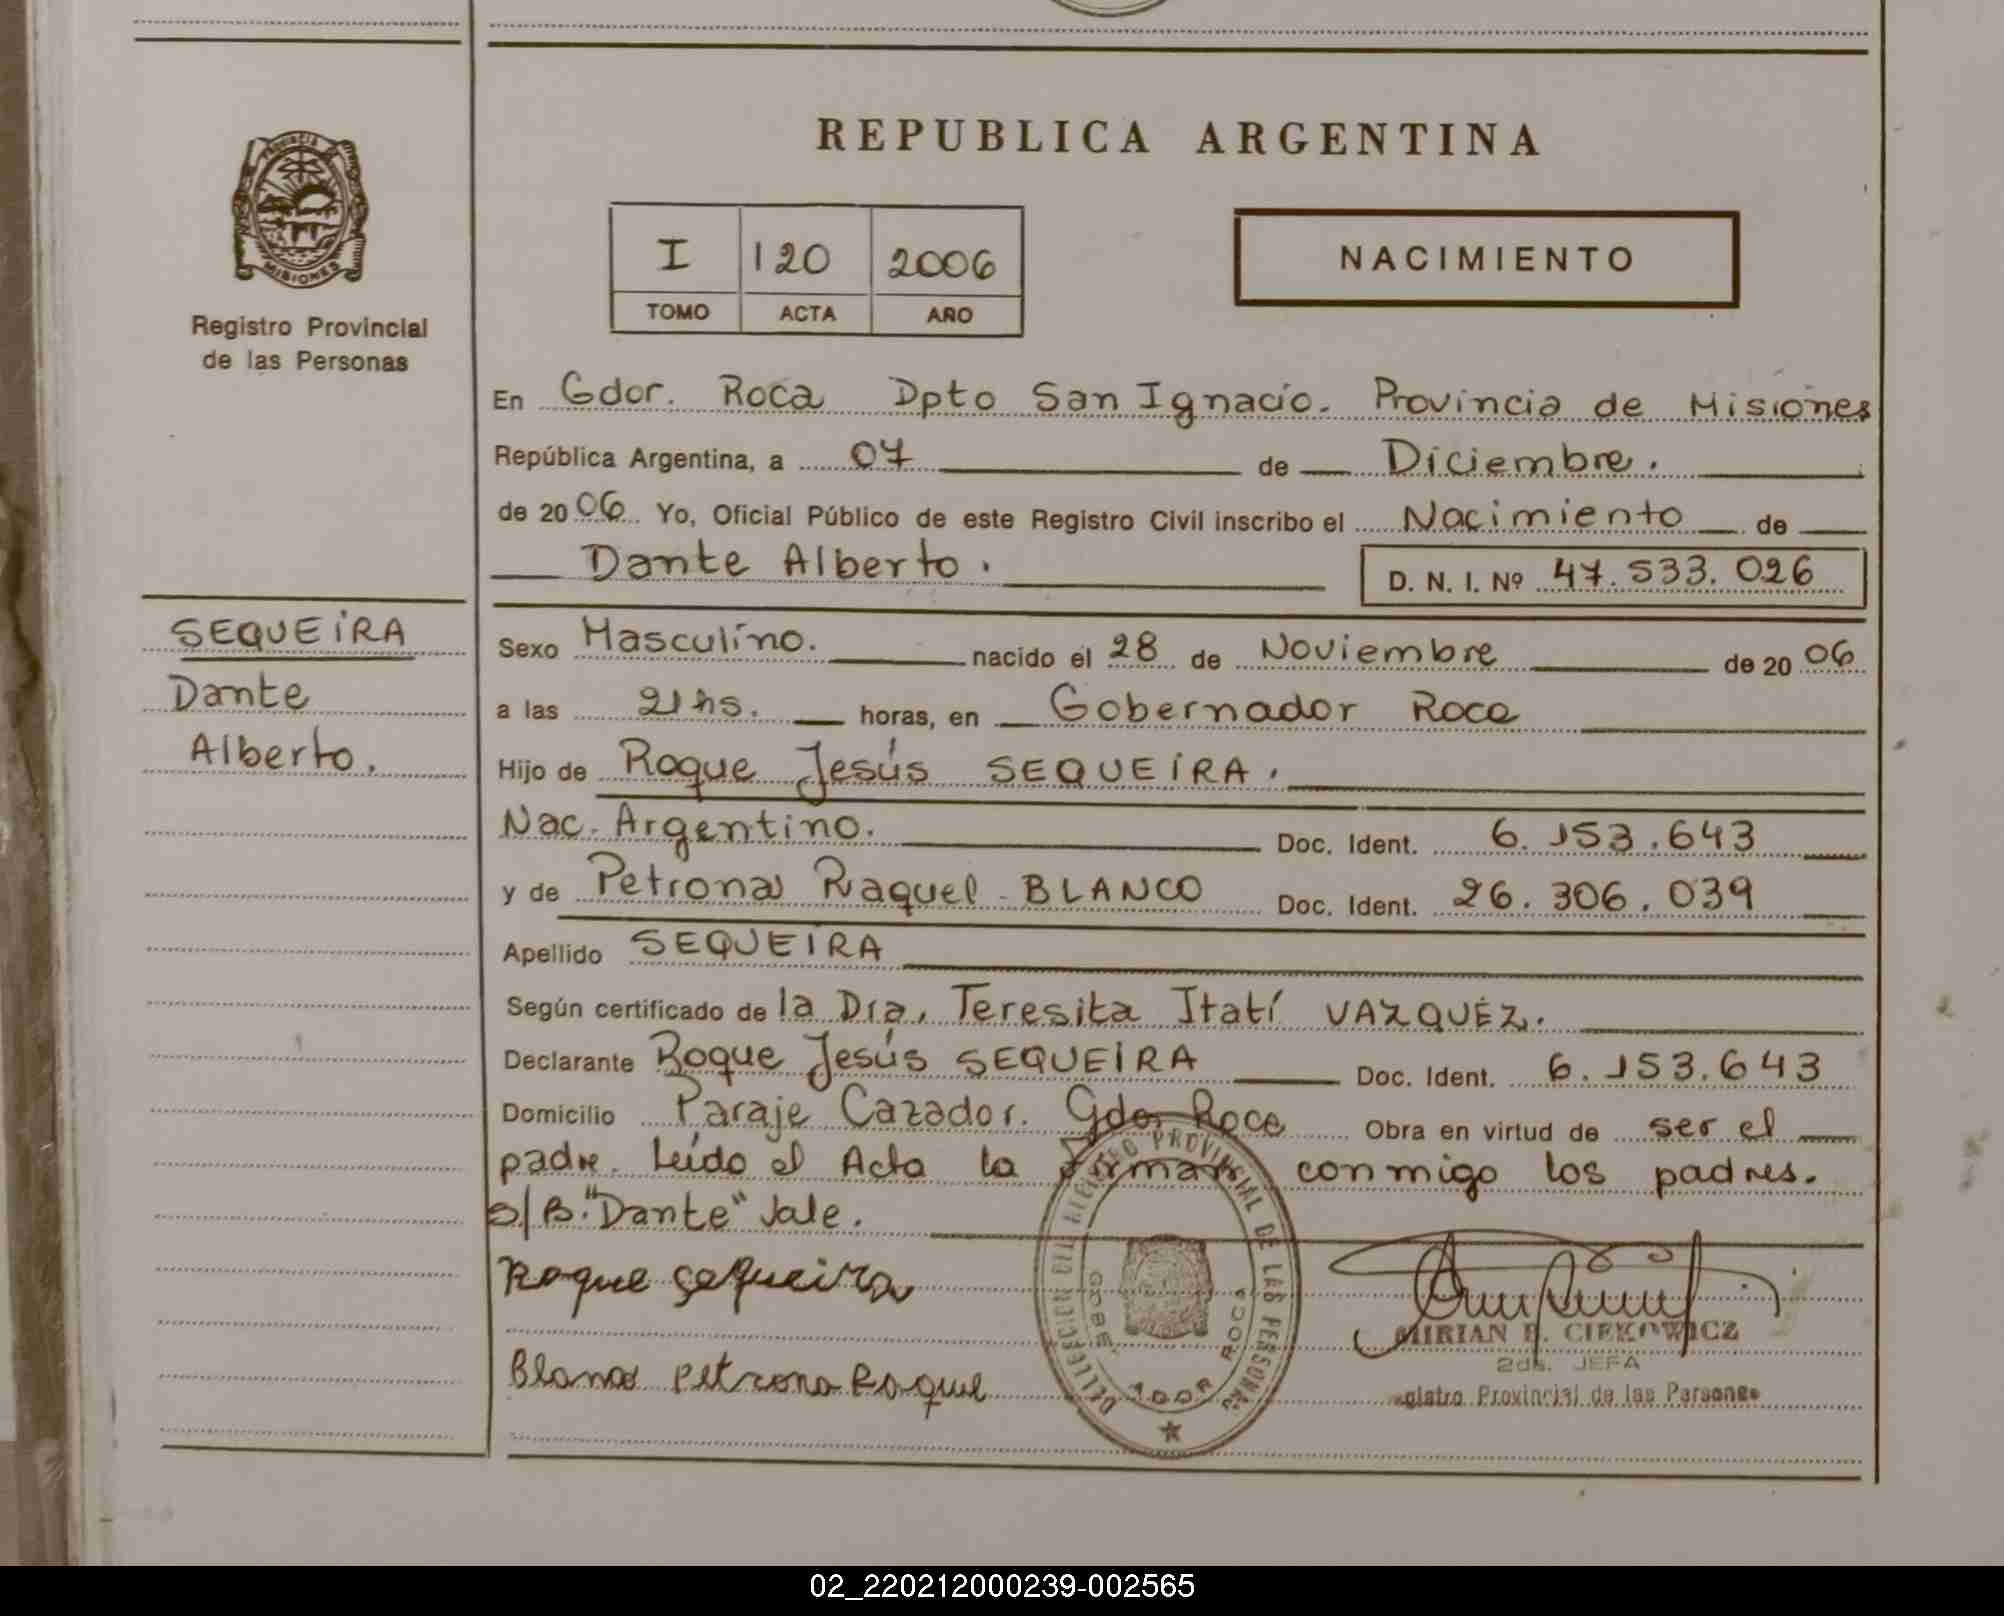 PROVINCIA DE
MISIONES
Registro Provincial
de las Personas
REPUBLICA ARGENTINA
I 120 2006
TOMO ACTA AÑO
NACIMIENTO
En Gdor. Roca Dpto San Ignacio. Provincia de Misiones
República Argentina, a 07 de Diciembre.
de 2006 Yo, Oficial Público de este Registro Civil inscribo el Nacimiento de
Dante Alberto. D. N. I. Nº 47.533.026
SEQUEIRA
Dante
Alberto.
Sexo Masculino. nacido el 28 de Noviembre de 2006
a las 21 hs. horas, en Gobernador Roca
Hijo de Roque Jesús SEQUEIRA.
Nac. Argentino. Doc. Ident. 6.153.643
y de Petrona Raquel BLANCO Doc. Ident. 26.306.039
Apellido SEQUEIRA
Según certificado de la Dra. Teresita Itatí VAZQUEZ.
Declarante Roque Jesús SEQUEIRA Doc. Ident. 6.153.643
Domicilio Paraje Cazador. Gdor Roca Obra en virtud de ser el
padre. Leído el Acta la firman conmigo los padres.
S/B. "Dante" Vale.
Roque Sequeira
Blanco Petrona Raquel
PROVINCIAL DE LAS PERSONAS
ROCA
MIRIAN E. CIEKOWICZ
2da. JEFA
gistro Provincial de las Personas
02_220212000239-002565